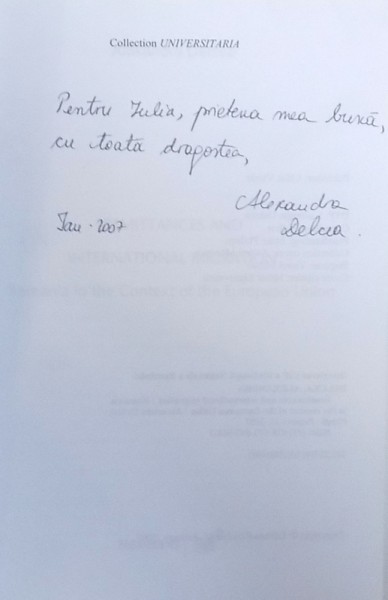 Collection UNIVERSITARIA
Pentru Iulia, prietena mea bună,
cu toată dragostea,
Alexandra
Ian. 2007
Delcea.